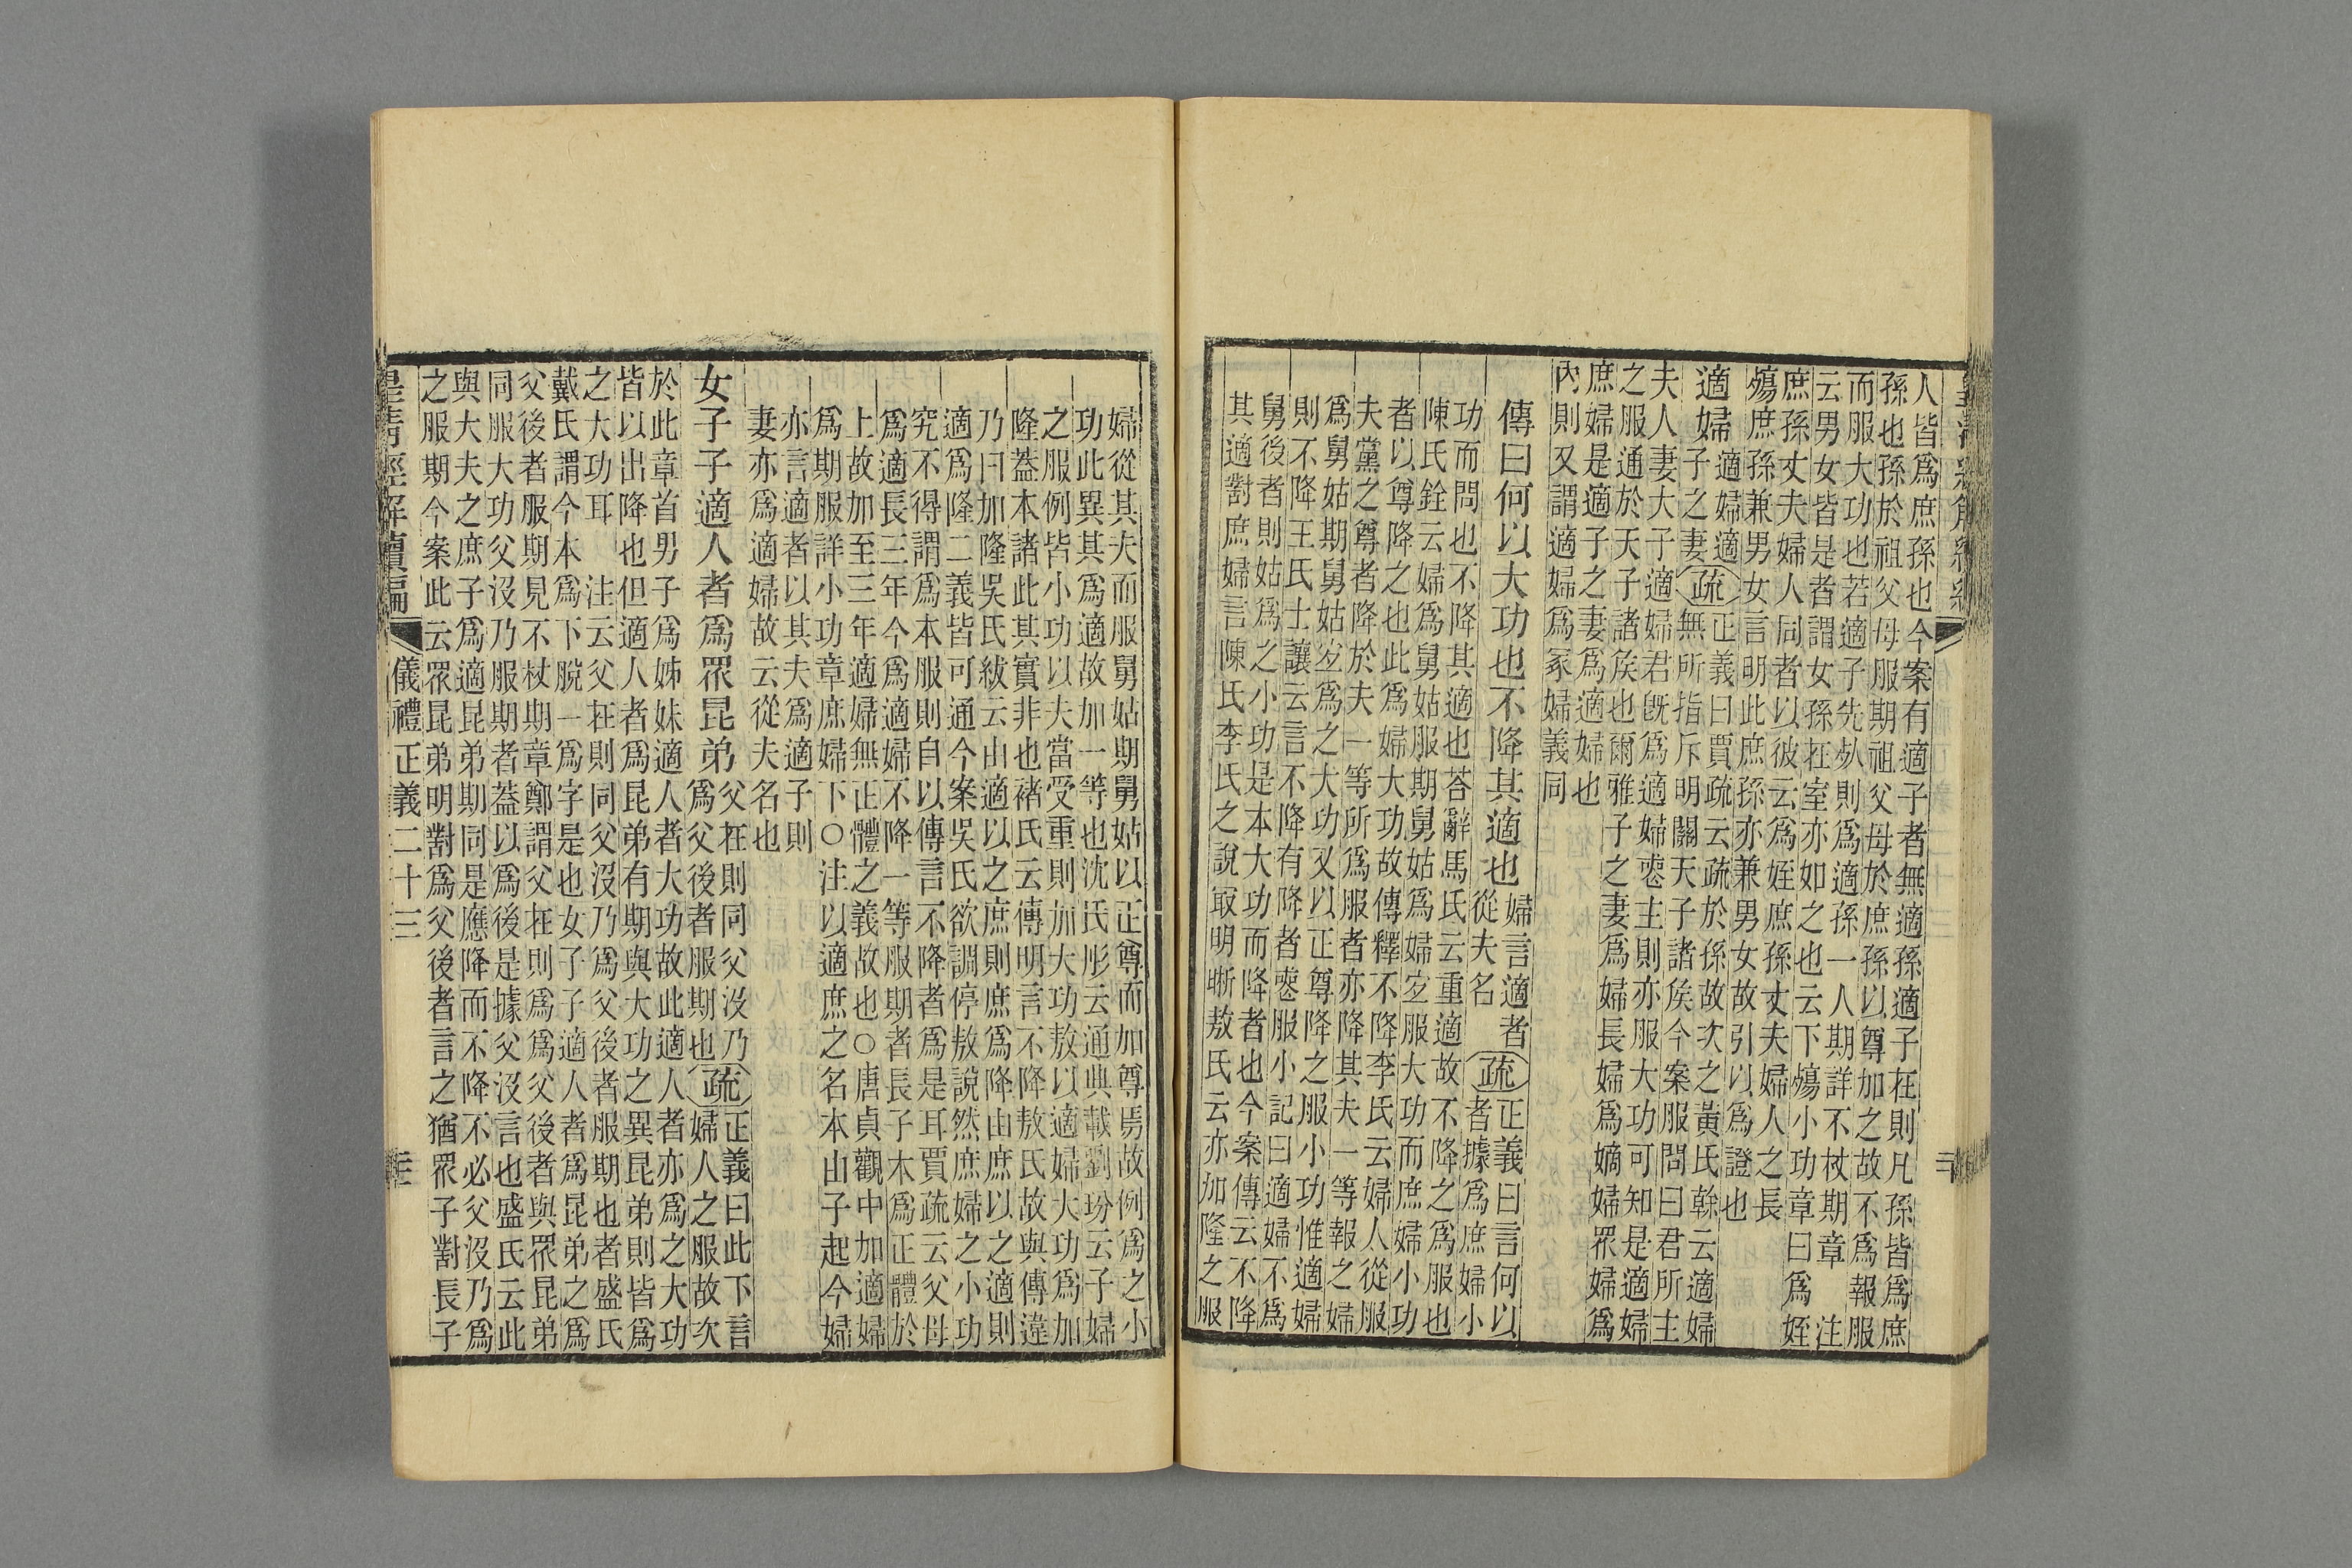 人皆爲庶孫也今案有適子者無適孫適子在則凡孫皆爲庶
孫也孫於祖父母服期祖父母於庶孫以尊加之故不爲報服
而服大功也若適子先𣦸則爲適孫一人期詳不杖期章　注
云男女皆是者謂女孫在室亦如之也云下殤小功章曰爲姪
庶孫丈夫婦人同者以彼云爲姪庶孫丈夫婦人之長
殤庶孫兼男女言明此庶孫亦兼男女故引以爲證也
適婦
適婦適
子之妻
疏
正義曰賈疏云疏於孫故次之黃氏榦云適婦
無所指斥明關天子諸矦今案服問曰君所主
夫人妻大子適婦君旣爲適婦䘮主則亦服大功可知是適婦
之服通於天子諸矦也爾雅子之妻爲婦長婦爲嫡婦眾婦爲
庶婦是適子之妻爲適婦也
內則又謂適婦爲冢婦義同
傳曰何以大功也不降其適也
婦言適者
從夫名
疏
正義曰言何以
者據爲庶婦小
功而問也不降其適也荅辭馬氏云重適故不降之爲服也
陳氏銓云婦爲舅姑服期舅姑爲婦宐服大功而庶婦小功
者以尊降之也此爲婦大功故傳釋不降李氏云婦人從服
夫黨之尊者降於夫一等所爲服者亦降其夫一等報之婦
爲舅姑期舅姑宐爲之大功又以正尊降之服小功惟適婦
則不降王氏士讓云言不降有降者䘮服小記曰適婦不爲
舅後者則姑爲之小功是本大功而降者也今案傳云不降
其適對庶婦言陳氏李氏之說取明晣敖氏云亦加隆之服
婦從其夫而服舅姑期舅姑以正尊而加尊焉故例爲之小
功此異其爲適故加一等也沈氏彤云通典載劉玢云子婦
之服例皆小功以夫當受重則加大功敖以適婦大功爲加
隆葢本諸此其實非也褚氏云傳明言不降敖氏故與傳違
乃曰加隆吳氏紱云由適以之庶則庶爲降由庶以之適則
適爲隆二義皆可通今案吳氏欲調停敖說然庶婦之小功
究不得謂爲本服則自以傳言不降者爲是耳賈疏云父母
爲適長三年今爲適婦不降一等服期者長子本爲正體於
上故加至三年適婦無正體之義故也○唐貞觀中加適婦
爲期服詳小功章庶婦下○注以適庶之名本由子起今婦
亦言適者以其夫爲適子則
妻亦爲適婦故云從夫名也
女子子適人者爲眾昆弟
父在則同父沒乃
爲父後者服期也
疏
正義曰此下言
婦人之服故次
於此章首男子爲姊妹適人者大功故此適人者亦爲之大功
皆以出降也但適人者爲昆弟有期與大功之異昆弟則皆爲
之大功耳　注云父在則同父沒乃爲父後者服期也者盛氏
戴氏謂今本爲下脫一爲字是也女子子適人者爲昆弟之爲
父後者服期見不杖期章鄭謂父在則爲爲父後者與眾昆弟
同服大功父沒乃服期者葢以爲後是據父沒言也盛氏云此
與大夫之庶子爲適昆弟期同是應降而不降不必父沒乃爲
之服期今案此云眾昆弟明對爲父後者言之猶眾子對長子
皇清經解續編
儀禮正義二十三